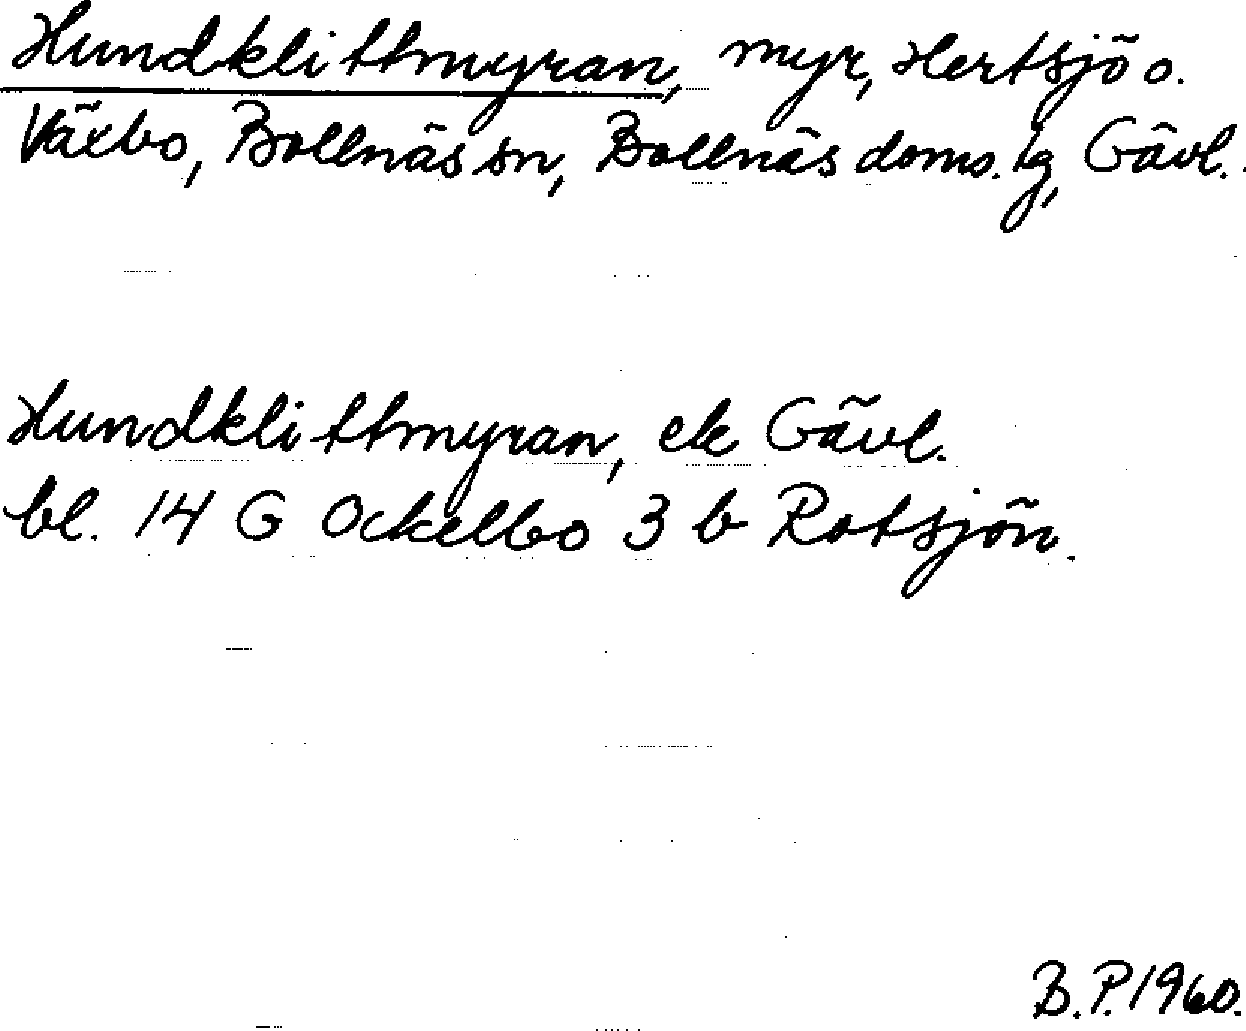 Hundklittmyran, myr, Hertsjö o.
Växbo, Bollnäs sn, Bollnäs doms. lg, Gävl.
Hundklittmyran, ek Gävl.
bl. 14 G Ockelbo 3 b Rotsjön.
B.P. 1960.